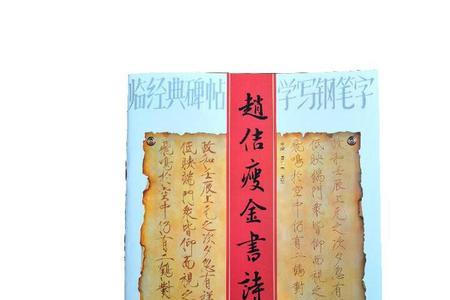 临经典碑帖 学写钢笔字
趙佶瘦金書詩
政和壬辰上元之次夕忽有
低映端門衆皆仰而視之
飛鳴於空中仍有二鶴對
政和壬辰上元之次夕忽有祥
低映端門衆皆仰而視之
飛鳴於空中仍有二鶴對